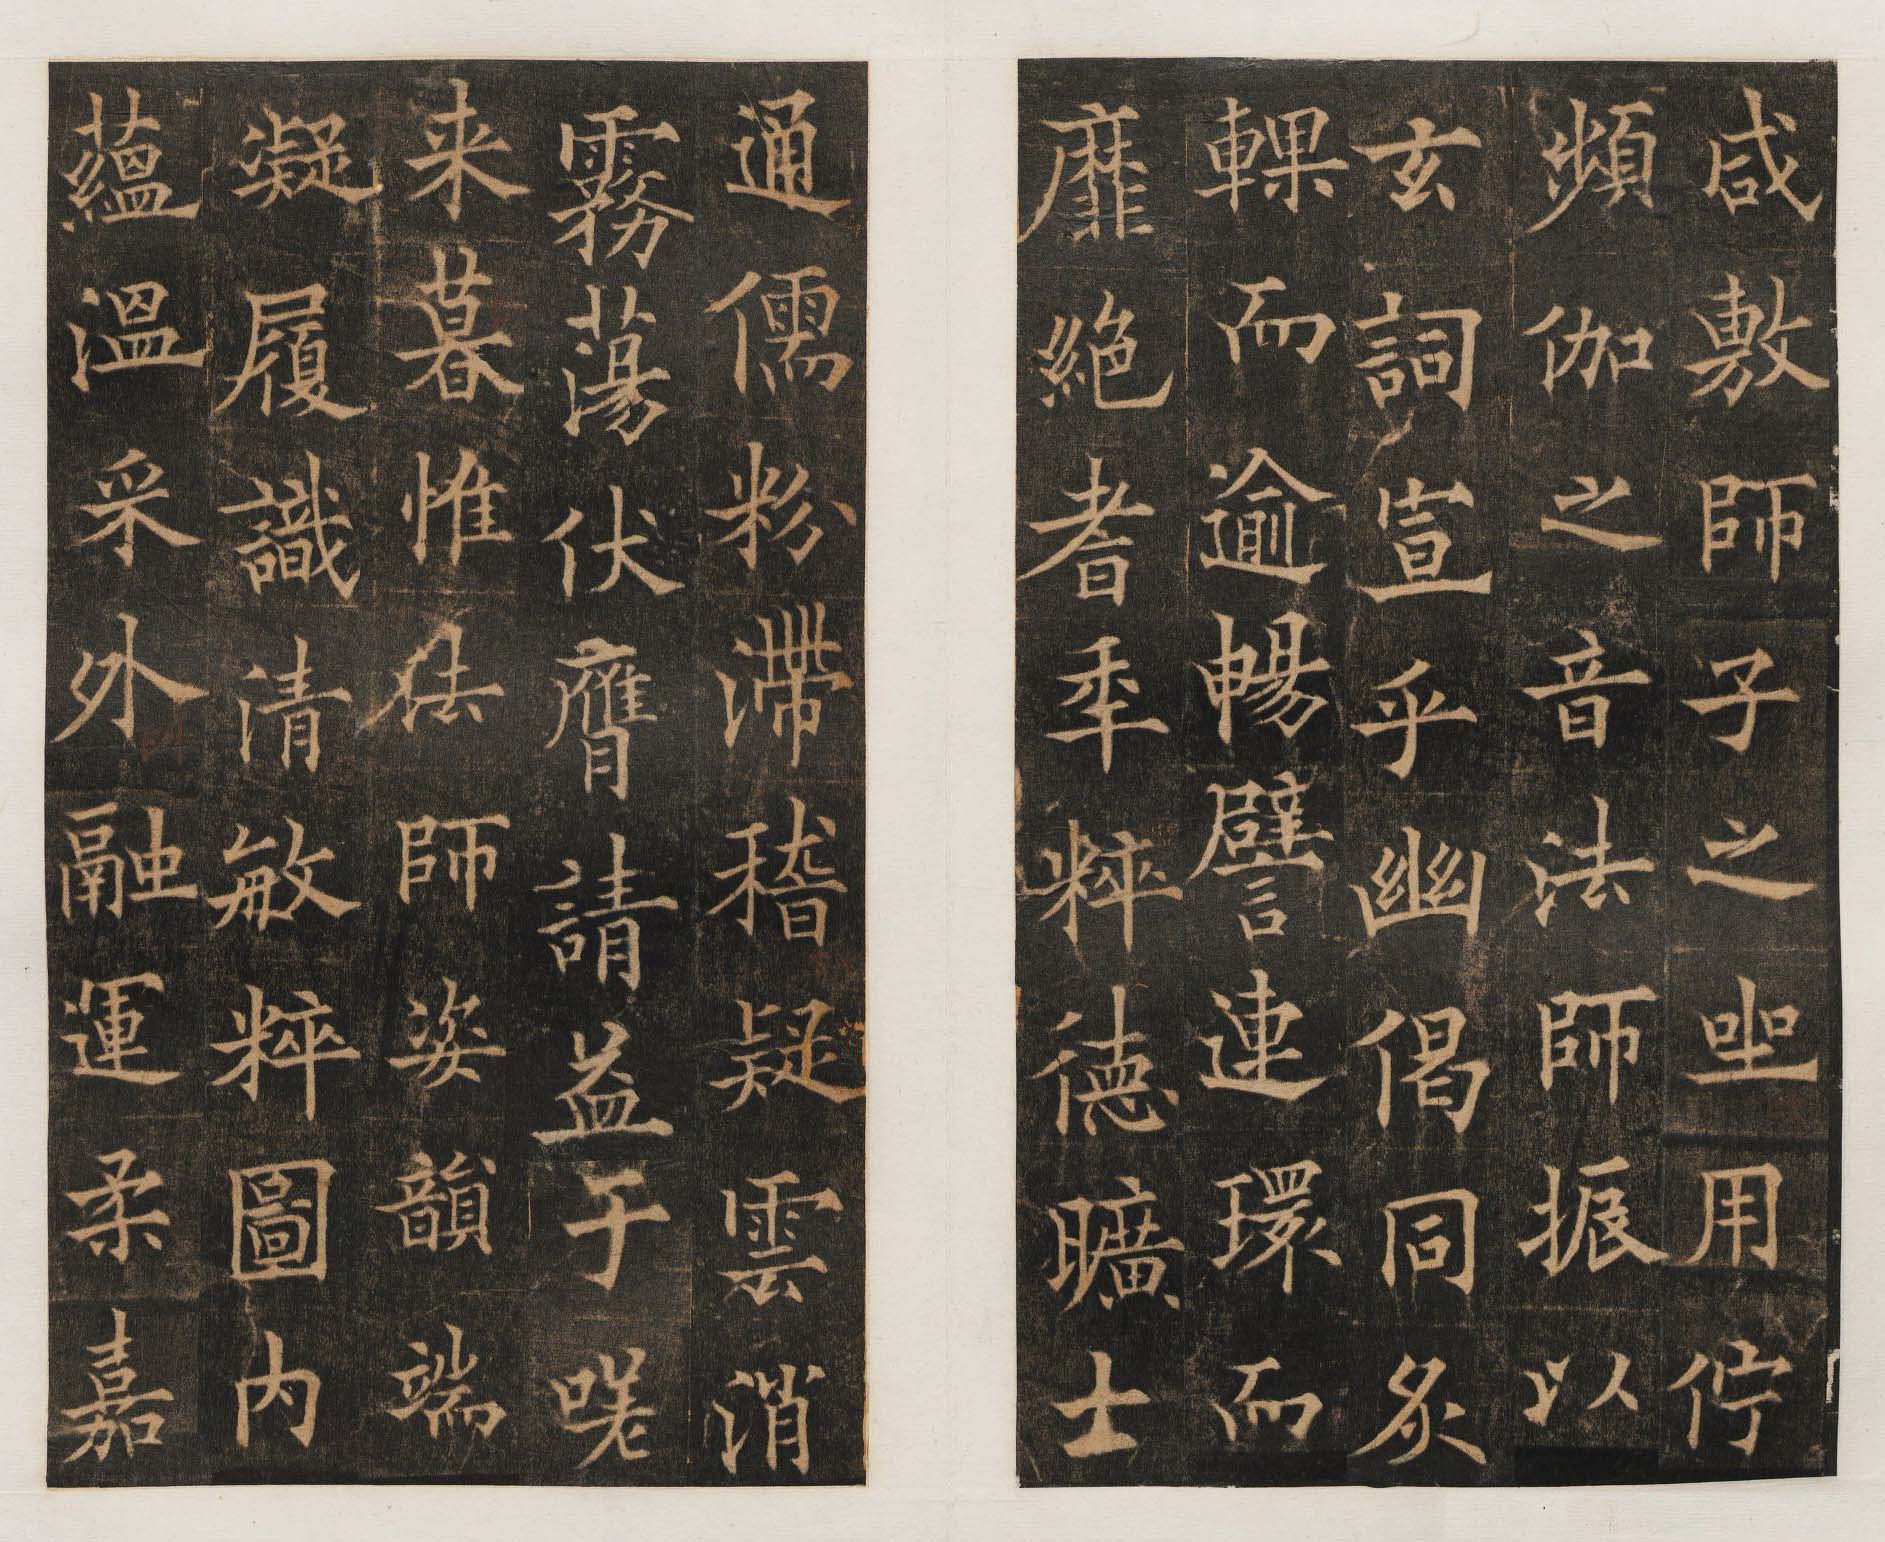 咸敷師子之坐用佇
頻伽之音法師振以
玄詞宣乎幽偈同炙
輠而逾暢譬連環而
靡絕耆秊粹德曠士
通儒粉滯稽疑雲消
霧蕩伏膺請益于嗟
来暮惟法師姿韻端
凝履識清敏粹圖内
蘊溫采外融運柔嘉